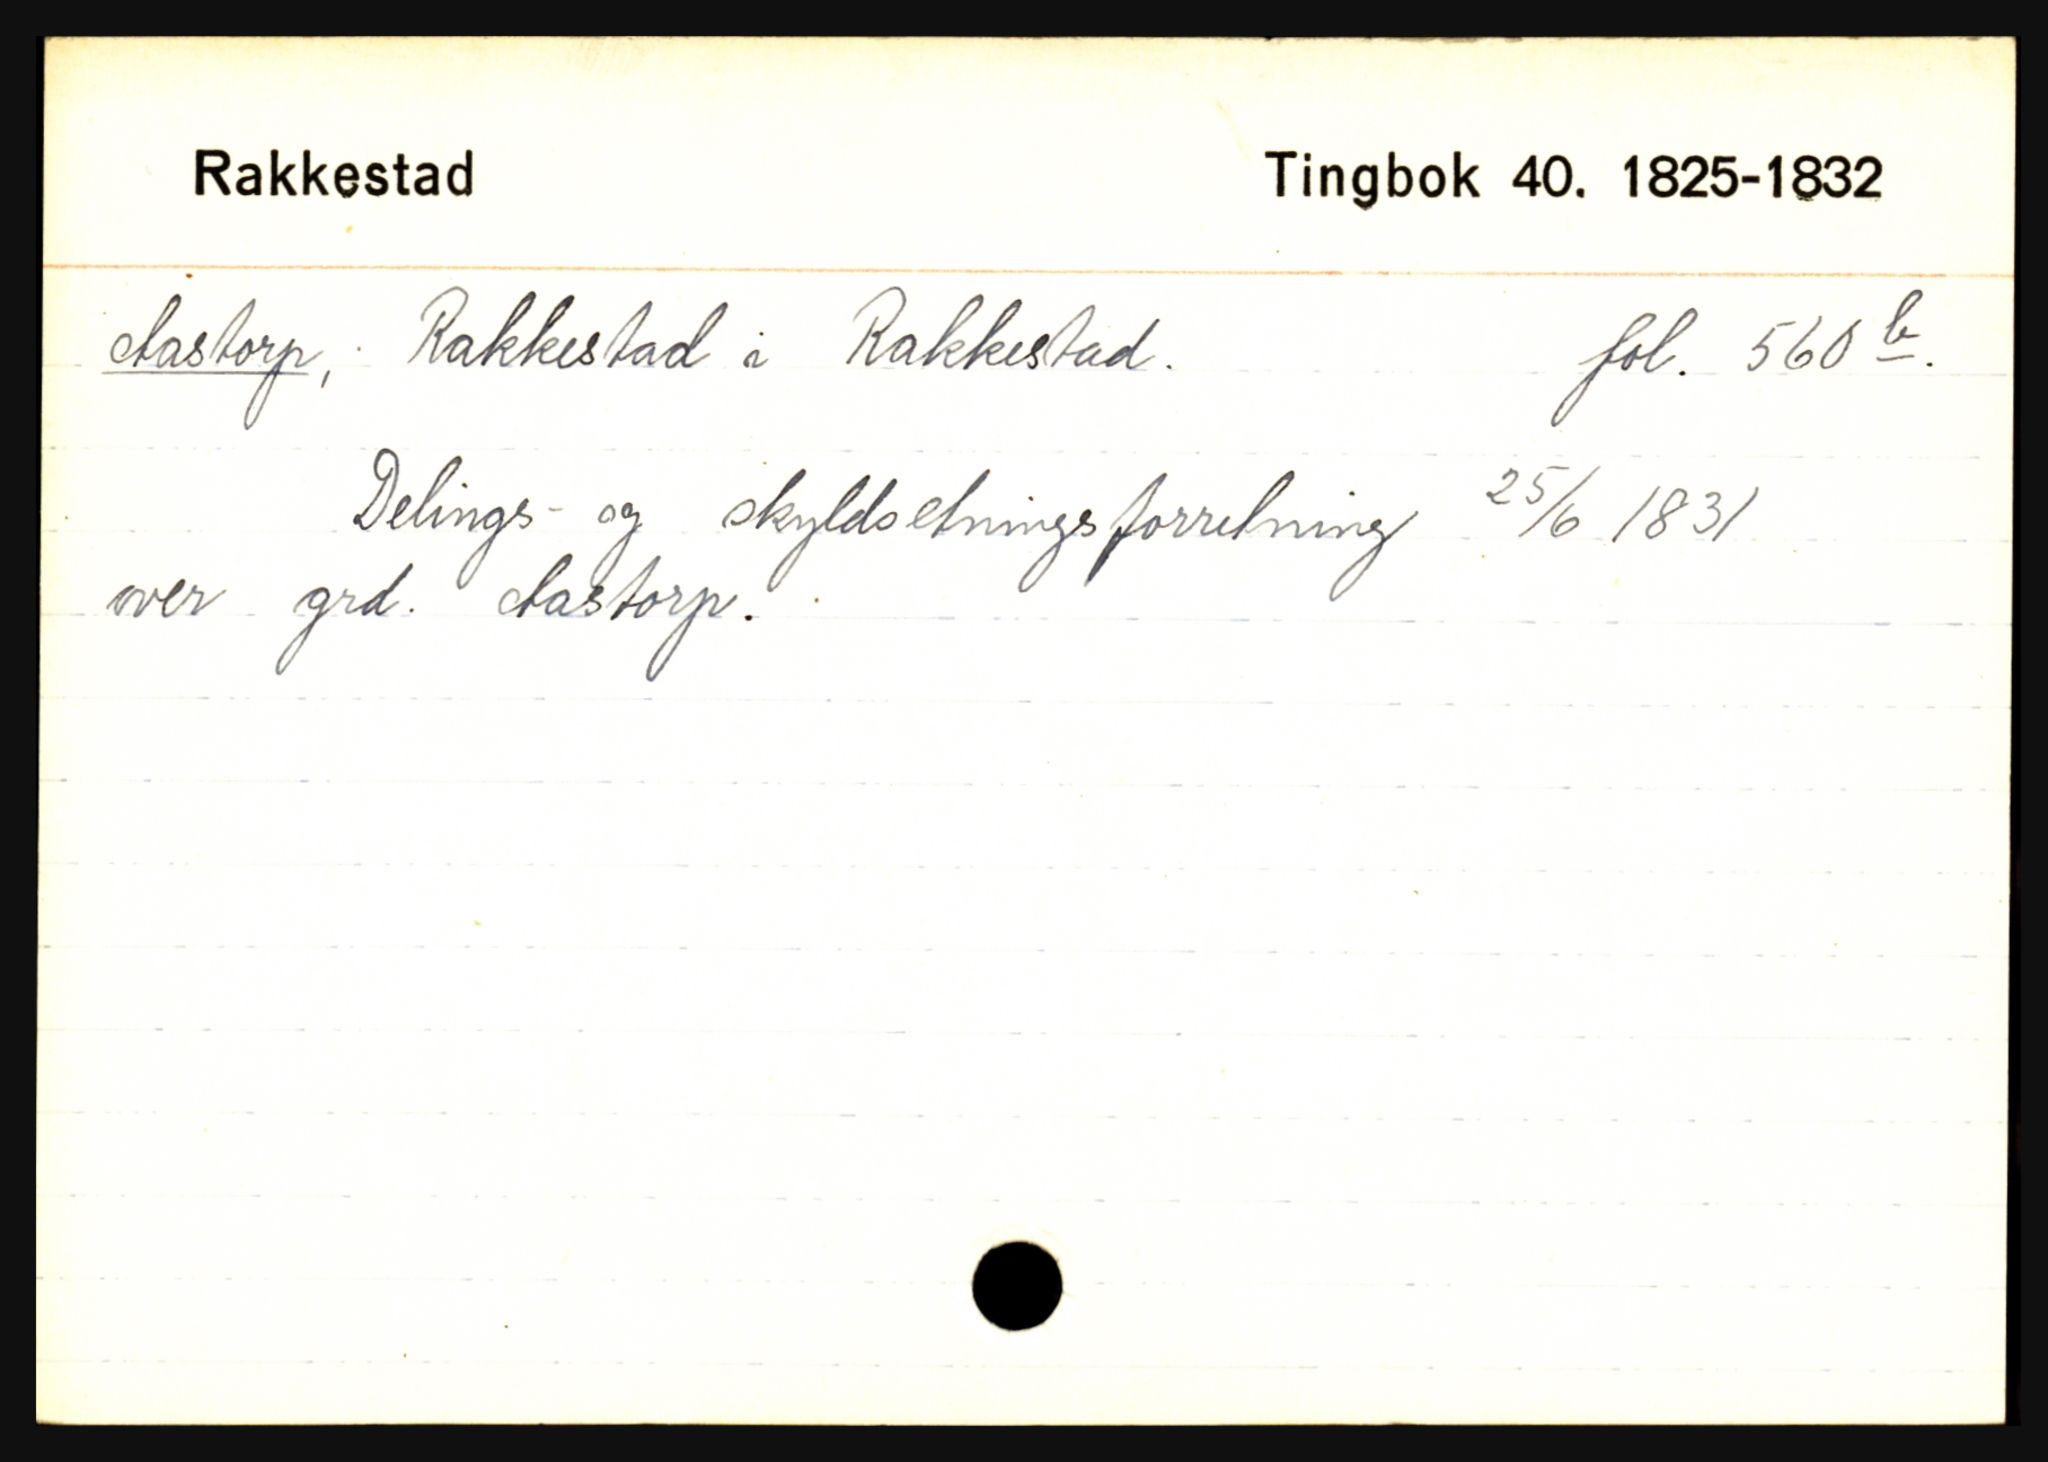 Rakkestad Tingbok 40. 1825-1832
Aastorp, Rakkestad i Rakkestad. fol. 560 b.
Delings- og skyldsetningsforretning 25/6 1831
over grd. Aastorp.